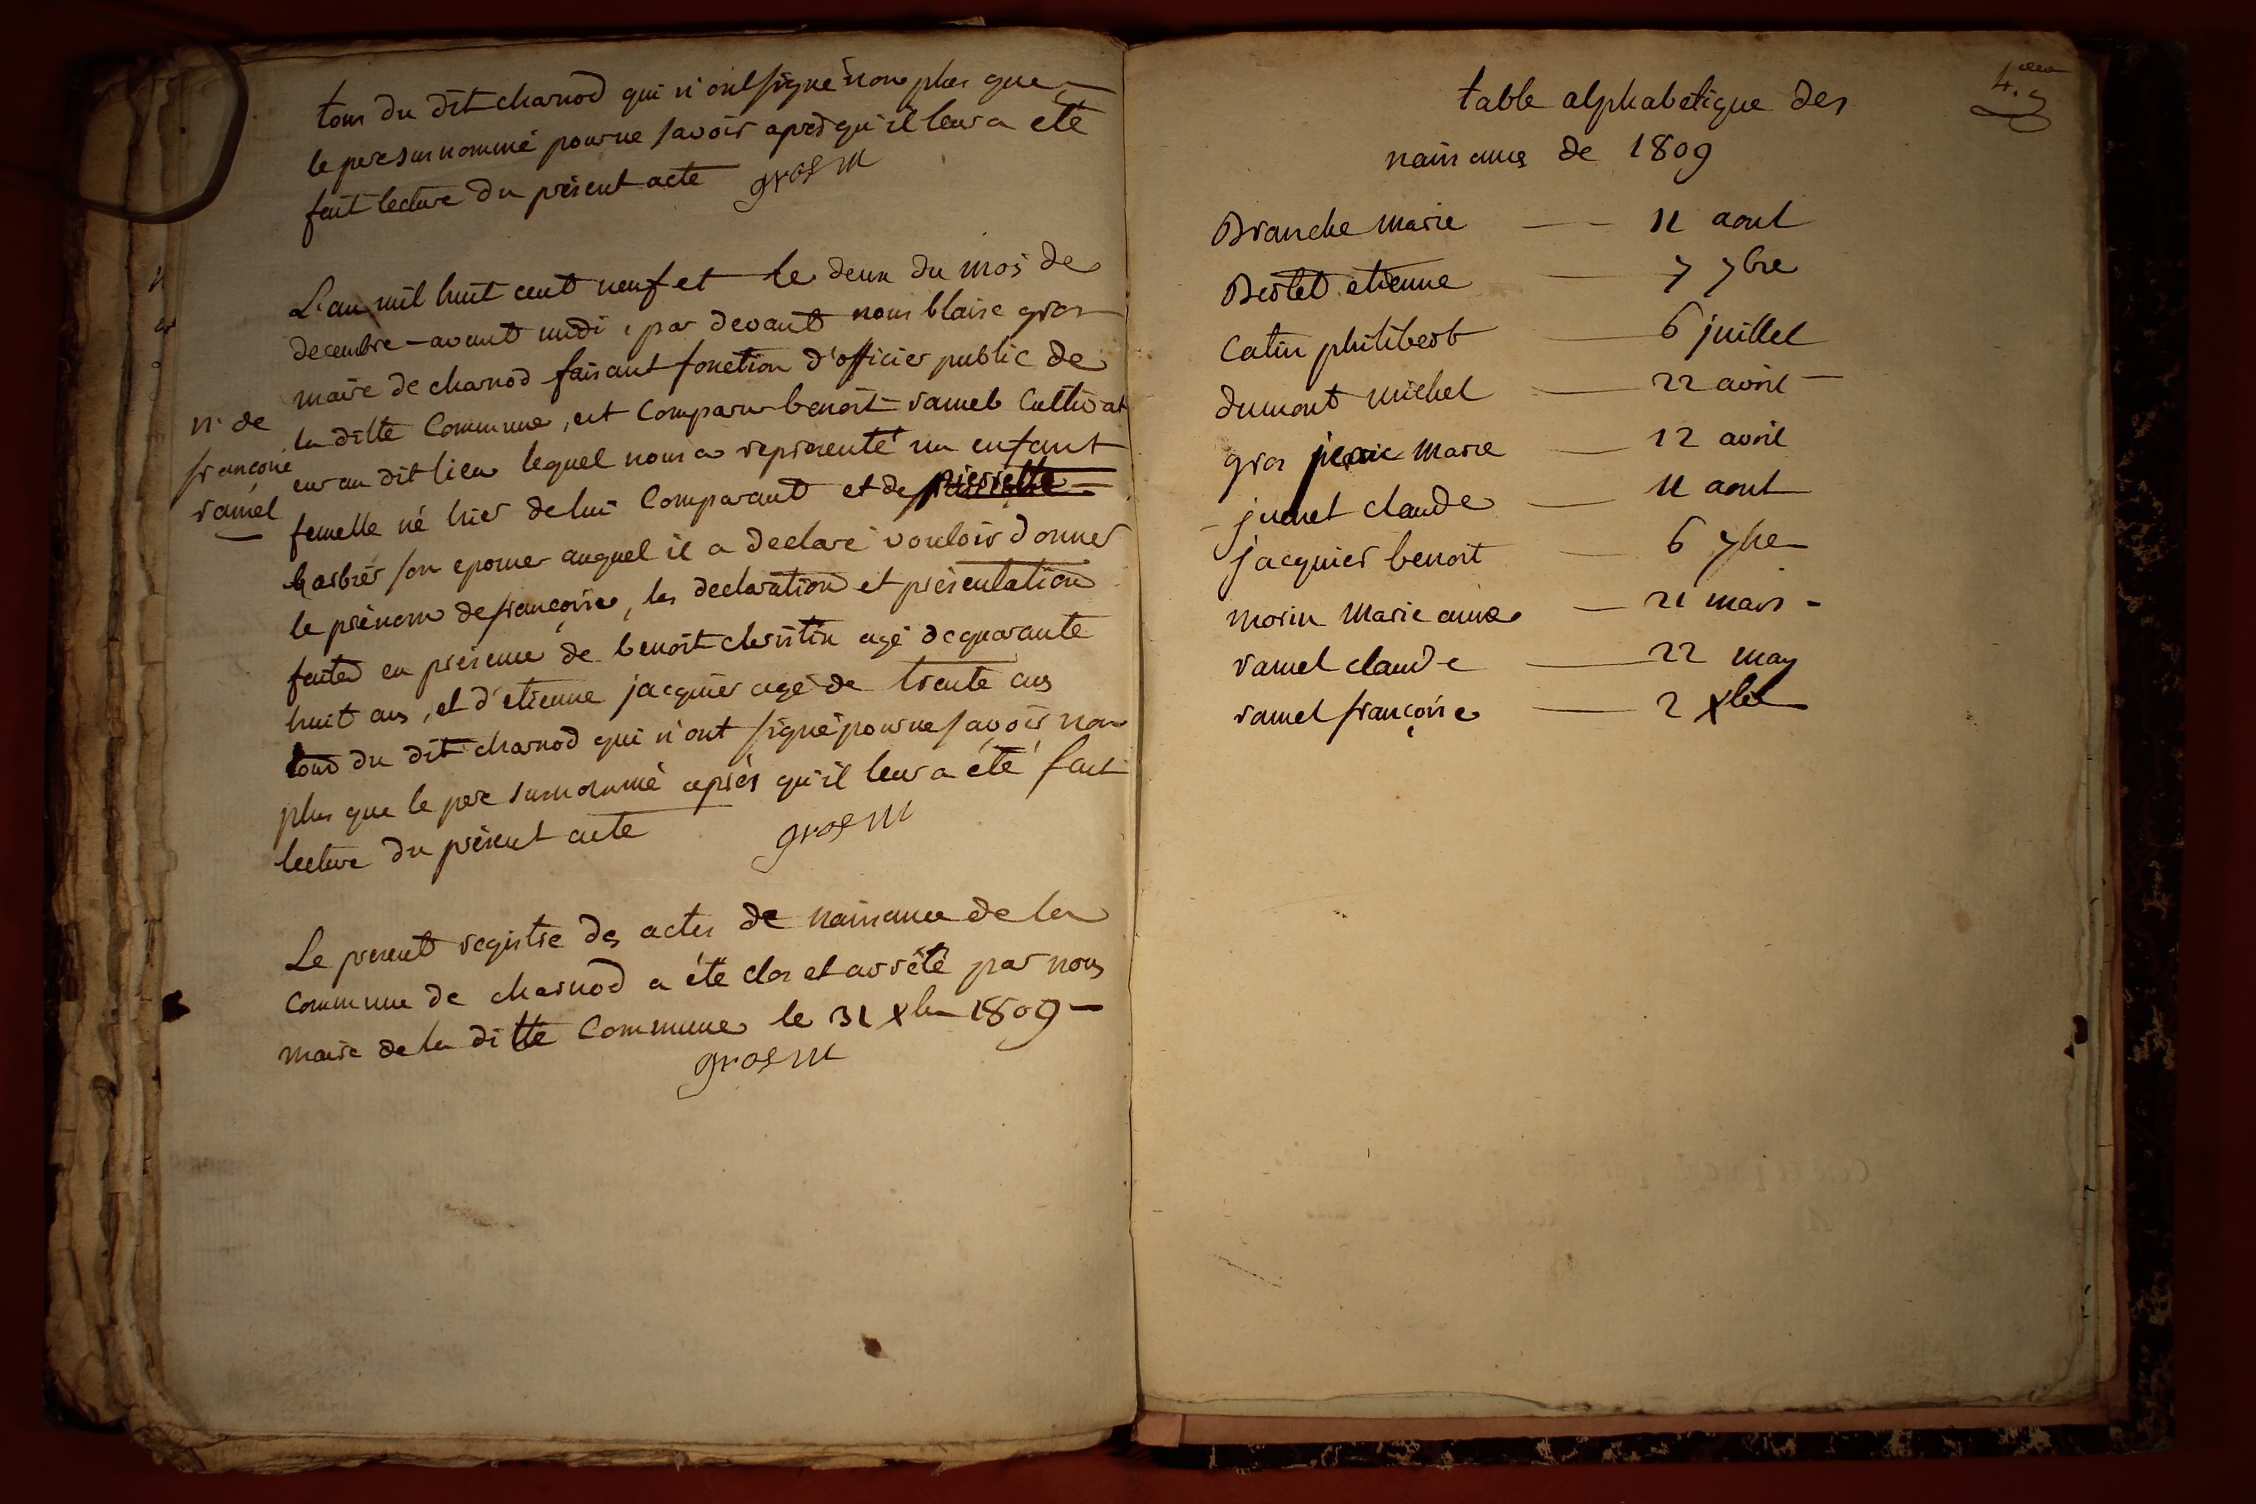 tous du dit charnod qui n'ont signé non plus que
le pere surnommé pour ne savoir après qu'il leur a été
fait lecture du présent acte gros m
L'an mil huit cent neuf et le deux du mois de
decembre avant midi, par devant nous blaise gros
maire de charnod faisant fonction d'officier public de
la ditte Commune, est Comparu benoit ramel Cultivat
eur au dit lieu lequel nous a représenté un enfant
femelle né hier de lui Comparant et de pierrette
barbier son epouse auquel il a declaré vouloir donner
le prénom de françoise, les declaration et présentation
faites en présence de benoit christin agé de quarante
huit ans, et d'etienne jacquier agé de trente ans
tous du dit charnod qui n'ont signé pour ne savoir non
plus que le pere surnommé après qu'il leur a été fait
lecture du présent acte gros m
n. de
françoise
ramel
Le present registre des actes de naissance de la
commune de charnod a été clos et arrêté par nous
maire de la ditte Commune le 31 xbre 1809
gros m
table alphabétique des
naissances de 1809
Branche marie — 11 aout
Bertet etienne — 7 7bre
Catin philibert — 6 juillet
dumont michel — 22 avril
gros marie — 12 avril
junet claude — 11 aout
jacquier benoit — 6 7bre
morin marie anne — 21 mars
ramel claude — 22 may
ramel françoise — 2 xbre